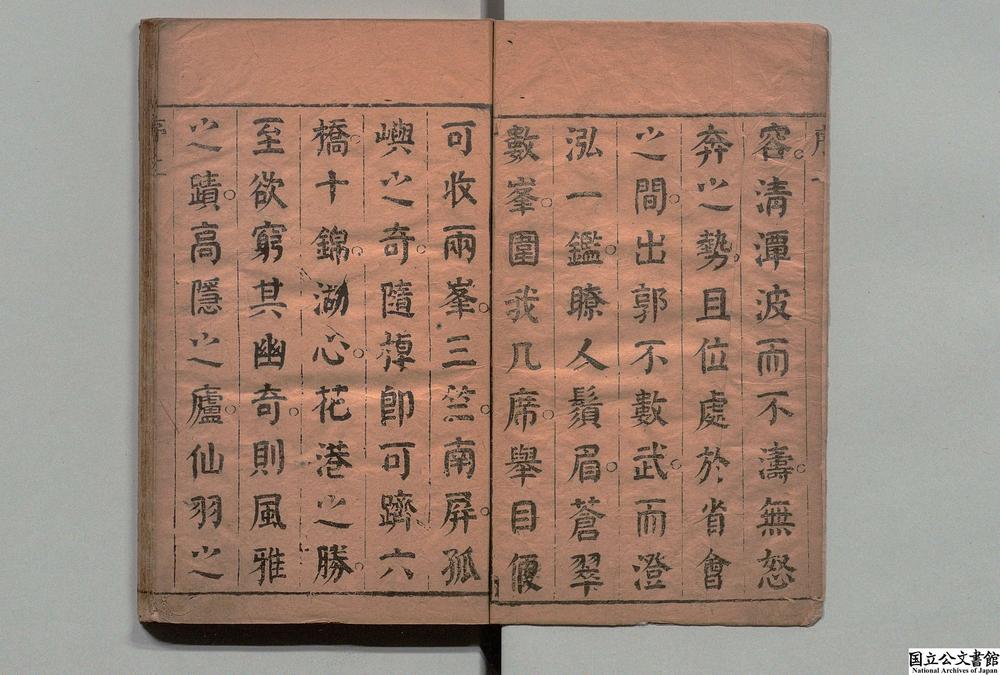 容。清潭波而不濤。無怒
奔之勢。且位處於省會
之間。出郭不數武。而澄
泓一鑑。瞭人鬚眉。蒼翠
數峯。圍我几席。舉目便
可收兩峯。三竺。南屏。孤
嶼之奇。隨棹卽可躋六
橋。十錦。湖心。花港之勝。
至欲窮其幽奇。則風雅
之蹟。高隱之廬。仙羽之
国立公文書館
National Archives of Japan